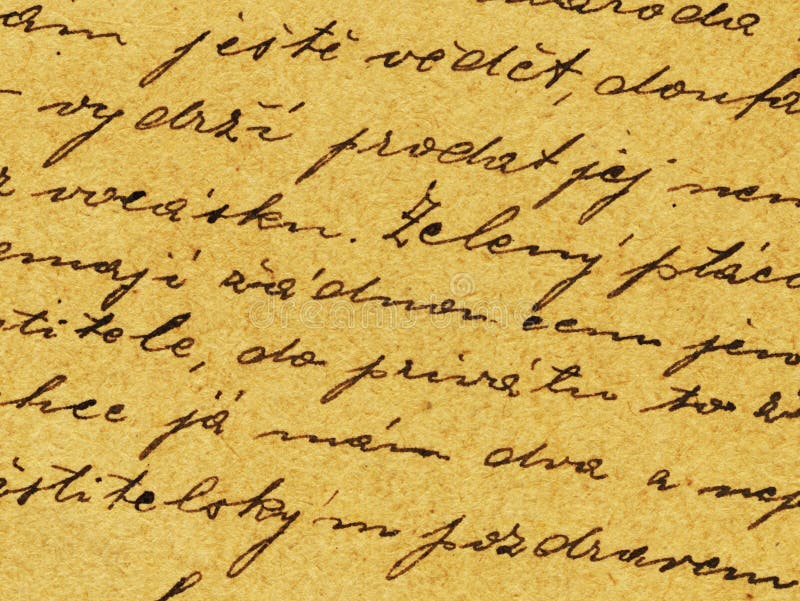 ám ještě vědět, doufa
vydrží prodat jej nem
z vocásku. Zelený ptáč
emají žádnou cenu jen
titele, do privátu to
hce já mám dva a nep
stitelským pozdravem